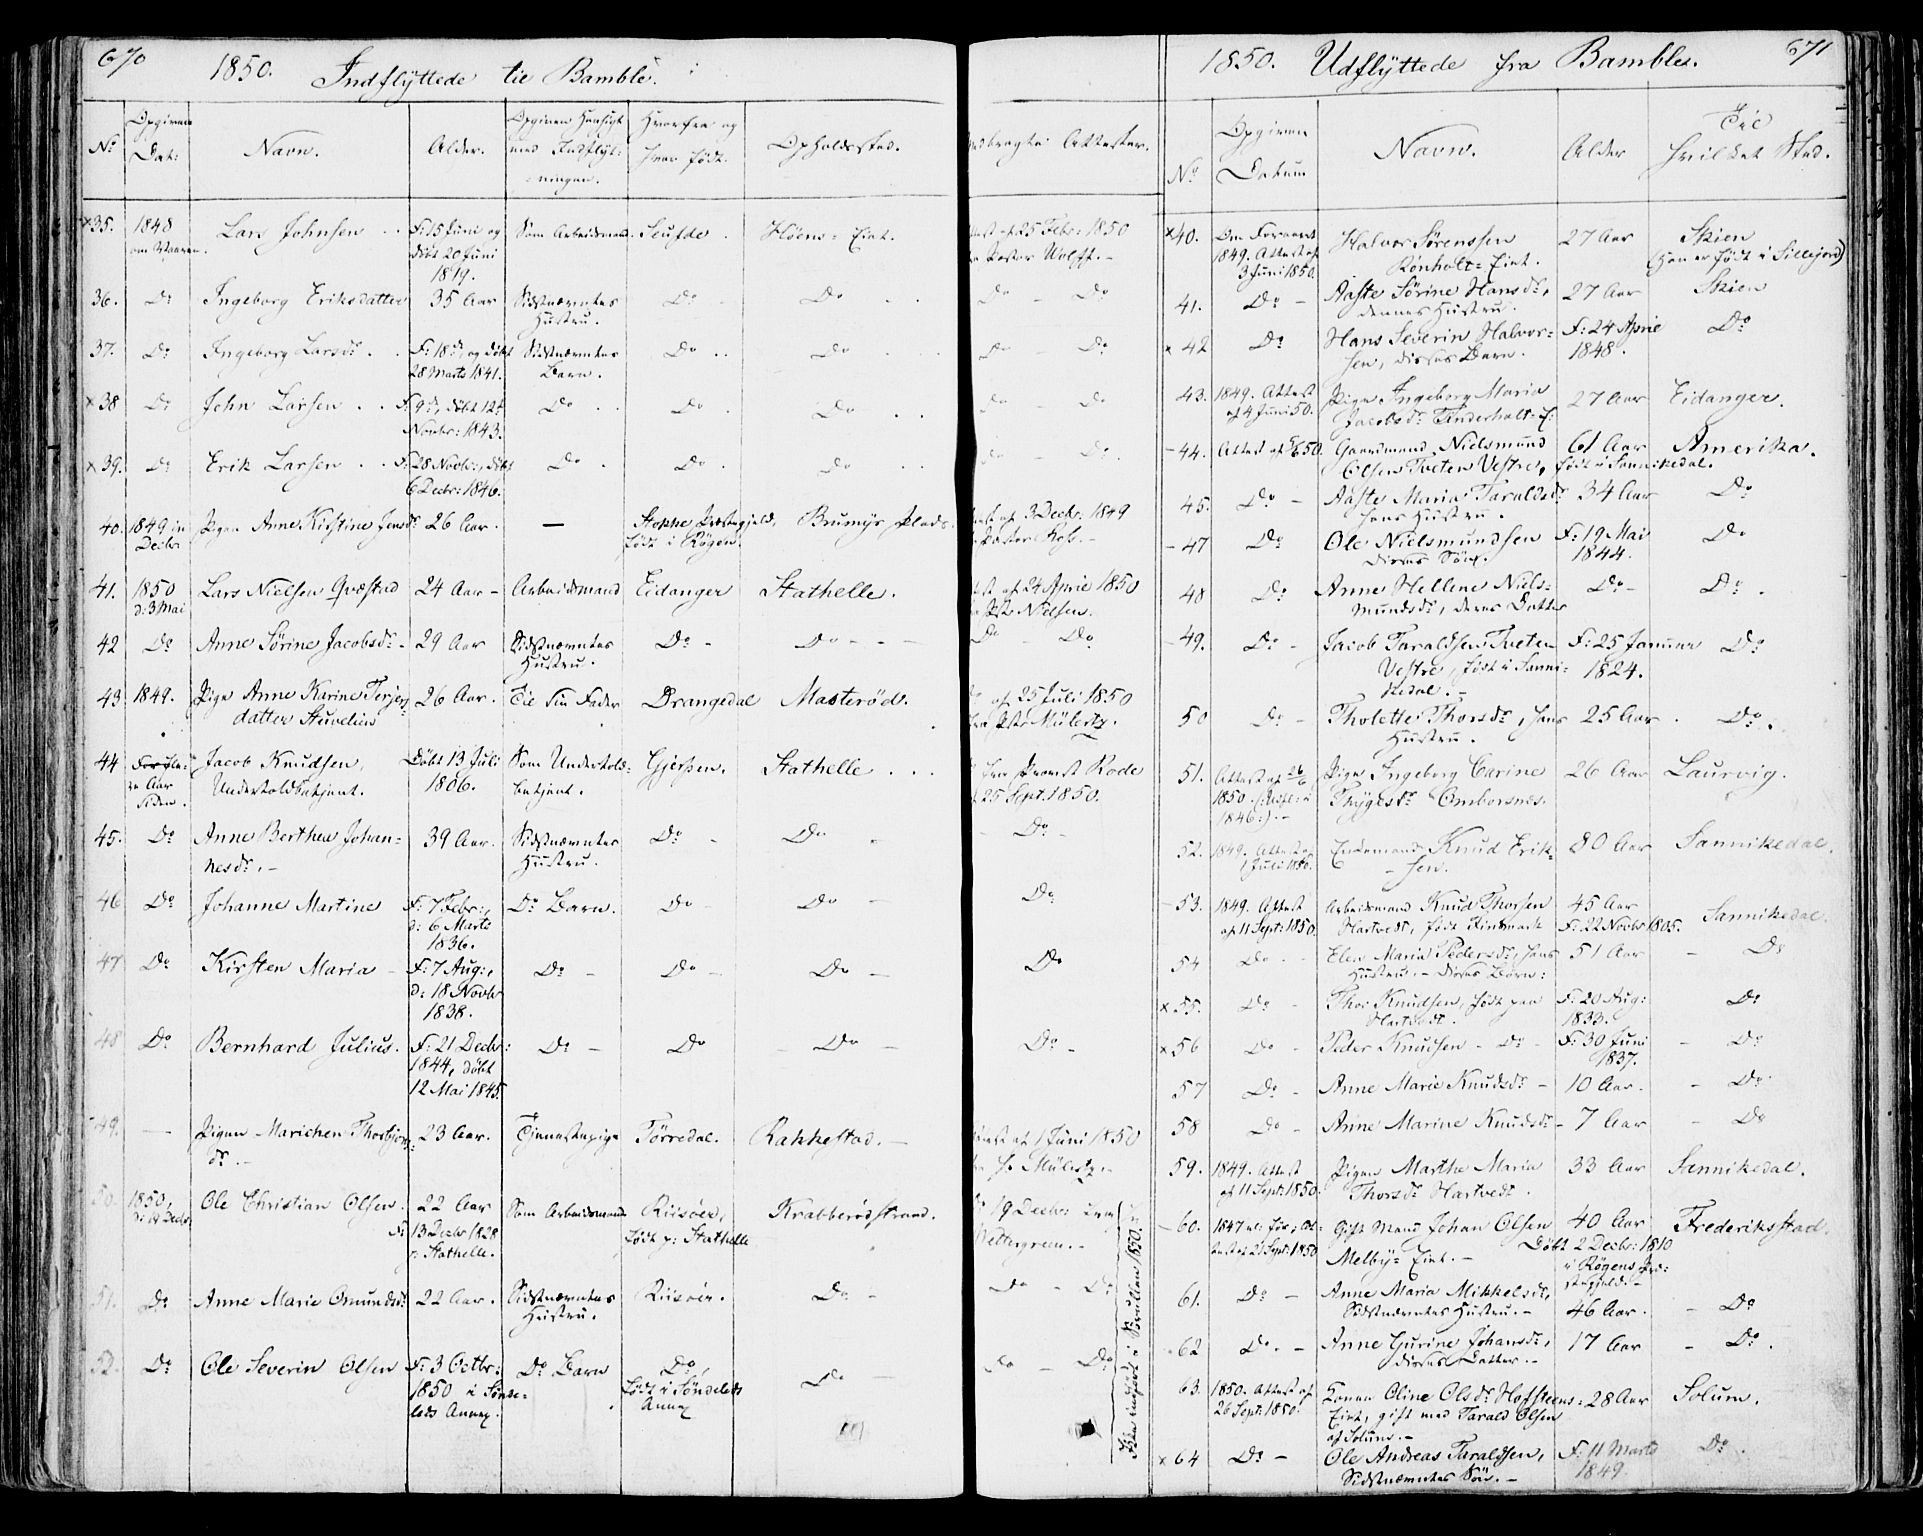 670
1850. Indflyttede til Bamble.
No
Opgiven Dat:
Navn.
Alder.
Opgiven Hensigt med Indflytningen.
Hvorfra og hvor født.
Opholdssted.
35. 1848 Lars Johnsen F: 15 Juni og døbt 20 Juni 1819. Som Arbeidsmand. Høens-Eiet.
36. Do Ingeborg Eriksdatter 35 Aar Sidstnævntes Hustru. Do Do
37. Do Ingeborg Larsdr. F: 18de, og døbt 28 Marts 1841. Sidstnævntes Barn. Do Do
38 Do John Larsen F: 9de, døbt 12te Novbr: 1843. Do Do Do
39. Do Erik Larsen F: 28 Novbr:, døbt 6 Decbr: 1846. Do Do Do
40. 1849 in Decbr. Pigen Anne Kirstine Jensdr 26 Aar. — Stokke Præstegjeld, født i Røgen. Plads.
41. 1850 d: 3 Mai Lars Nielsen Qvæstad 24 Aar - Arbeidsmand Eidanger Stathelle.
42 Do Anne Sørine Jacobsdr - 29 Aar Sidstnævntes Hustru. Do - Do - - -
43 1849. Pige Anne Karine Terjesdatter 26 Aar. Til sin Fader Drangedal Masterød.
44 Aar siden. Jacob Knudsen, Undertoldbetjent. Døbt 13 Juli 1806. Som Undertoldbetjent. Gjerpen. Stathelle . . .
45. Do Anne Berthea Johannesdr. - 39 Aar. Sidstnævntes Hustru. Do - Do
46 Do Johanne Martine F: 7 Febr:, d: 6 Marts 1836. Do Barn. Do - Do -
47 Do Kirsten Maria - F: 7 Aug:, d: 18 Novbr 1838. Do - Do - Do -
48 Do Bernhard Julius. F: 21 Decbr: 1844, døbt 12 Mai 1845. Do - Do - Do -
49. — Pigen Marichen Thorbjørnsdr. - 23 Aar. Tjenestepige Tørredal. Rakkestad. -
50. 1850, d: 19 Decbr. Ole Christian Olsen. 22 Aar 13 Decbr 1828 p: Stathelle. Som Arbeidsmand Riisøer, født p: Stathelle Krabberødstrand.
51. Do Anne Marie Omundsdr 22 Aar. Sidstnævntes Hustru. Riisøer. Do -
52. Do Ole Severin Olsen F: 3 Octbr: 1850 i Søndeleds Annex. Do Barn Do, født i Søndeleds Annex Do -
Attester.
af 25 Febr: 1850
Pastor Wolff. -
Do - Do
Do - Do
Do - Do
Do - Do.
af 3 Decbr. 1849
Pastor
af 24 April 1850
Nielsen.
Do - Do
af 25 Juli 1850
Mülertz.
fra Provst Rode
25 Sept. 1850.
- Do -
Do
Do
Do -
af 1 Juni 1850
Mülertz. -
19 Decbr:
Wettergreen. -
Do - Do
Do - Do
671
1850. Udflyttede fra Bamble.
No
Opgiven Datum
Navn.
Alder
Til hvilket Sted.
40. Om Foraaret 1849. Attest af 3 Juni 1850. Halvor Sørenssen Rønholt-Eiet. 27 Aar Skien (Han er født i Sillejord)
41. Do - Aaste Sørine Hansdr, dennes Hustru. 27 Aar Skien
42 Do Hans Severin Halvorsen, disses Barn. F: 24 April 1848. Do
43. 1849. Attest af 4 Juni 50. Pige Ingeborg Maria Jacobsdr 27 Aar Eidanger.
44. Gaardmand Nielsmund Olsen Tveten Vestre, født i Sannikedal. 61 Aar Amerika.
45. Do - Aaste Maria Taraldsdr hans Hustru. 34 Aar Do
47 Do Ole Nielsmundsen disses Søn. F: 19 Mai 1844. Do
48 Do Anne Hellene Nielsmundsdr, deres Datter Do - Do.
49. Do - Jacob Taraldsen Tveten Vestre, født i Sannikedal. - F: 25 Januar 1824. Do
50 Do - Tholette Thorsdr, hans Hustru. 25 Aar. Do.
51. Attest af 26/6 1850. Pige Ingeborg Carine Thygesdr Omborsnes. 26 Aar Laurvig.
52. 1849. Attest af 1 Juli 1850. Enkemand Knud Eriksen. 80 Aar Sannikedal.
53. 1849. Attest af 11 Sept: 1850. Arbeidsmand Knud Thorsen Hartvedt, født 45 Aar F: 22 Novbr 1805. Sannikedal.
54 Do - Elen Maria Pedersdr, hans Hustru. - Disses Børn: 51 Aar - Do
55. Do - Thor Knudsen, født paa Hartvedt. F: 20 Aug: 1833. Do
56 Do - Peder Knudsen - Do - F: 30 Juni 1837. - Do
57 Do - Anne Marie Knudsdr - 10 Aar. - Do
58 Do - Anne Marine Knudsdr - 7 Aar - Do
59. 1849. Attest af 11 Sept: 1850. Pigen Marthe Maria Thorsdr Hartvedt. 33 Aar Sannikedal.
60. Gift Mand Johan Olsen Melby-Eiet. - 40 Aar Døbt 2 Decbr: 1810 i Røgens Frederiksstad.
61. Do - Anne Maria Mikkelsdr, Sidstnævntes Hustru. - 46 Aar. - Do
62 Do. - Anne Gurine Johansdr, disses Datter. - 17 Aar - Do.
63. 1850. Attest af 26 Sept: 1850. Konen Oline Olsdr Hafsteens-Eiet, gift med Tarald Olsen af Solum. - 28 Aar Solum.
64 Do - Ole Andreas Taraldsen, Sidstnævntes Søn. - F: 11 Marts 1849. Do.